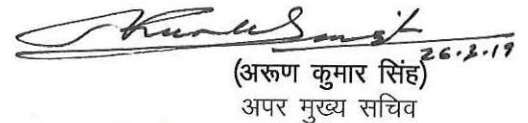 26.3.19
(अरूण कुमार सिंह)
अपर मुख्य सचिव